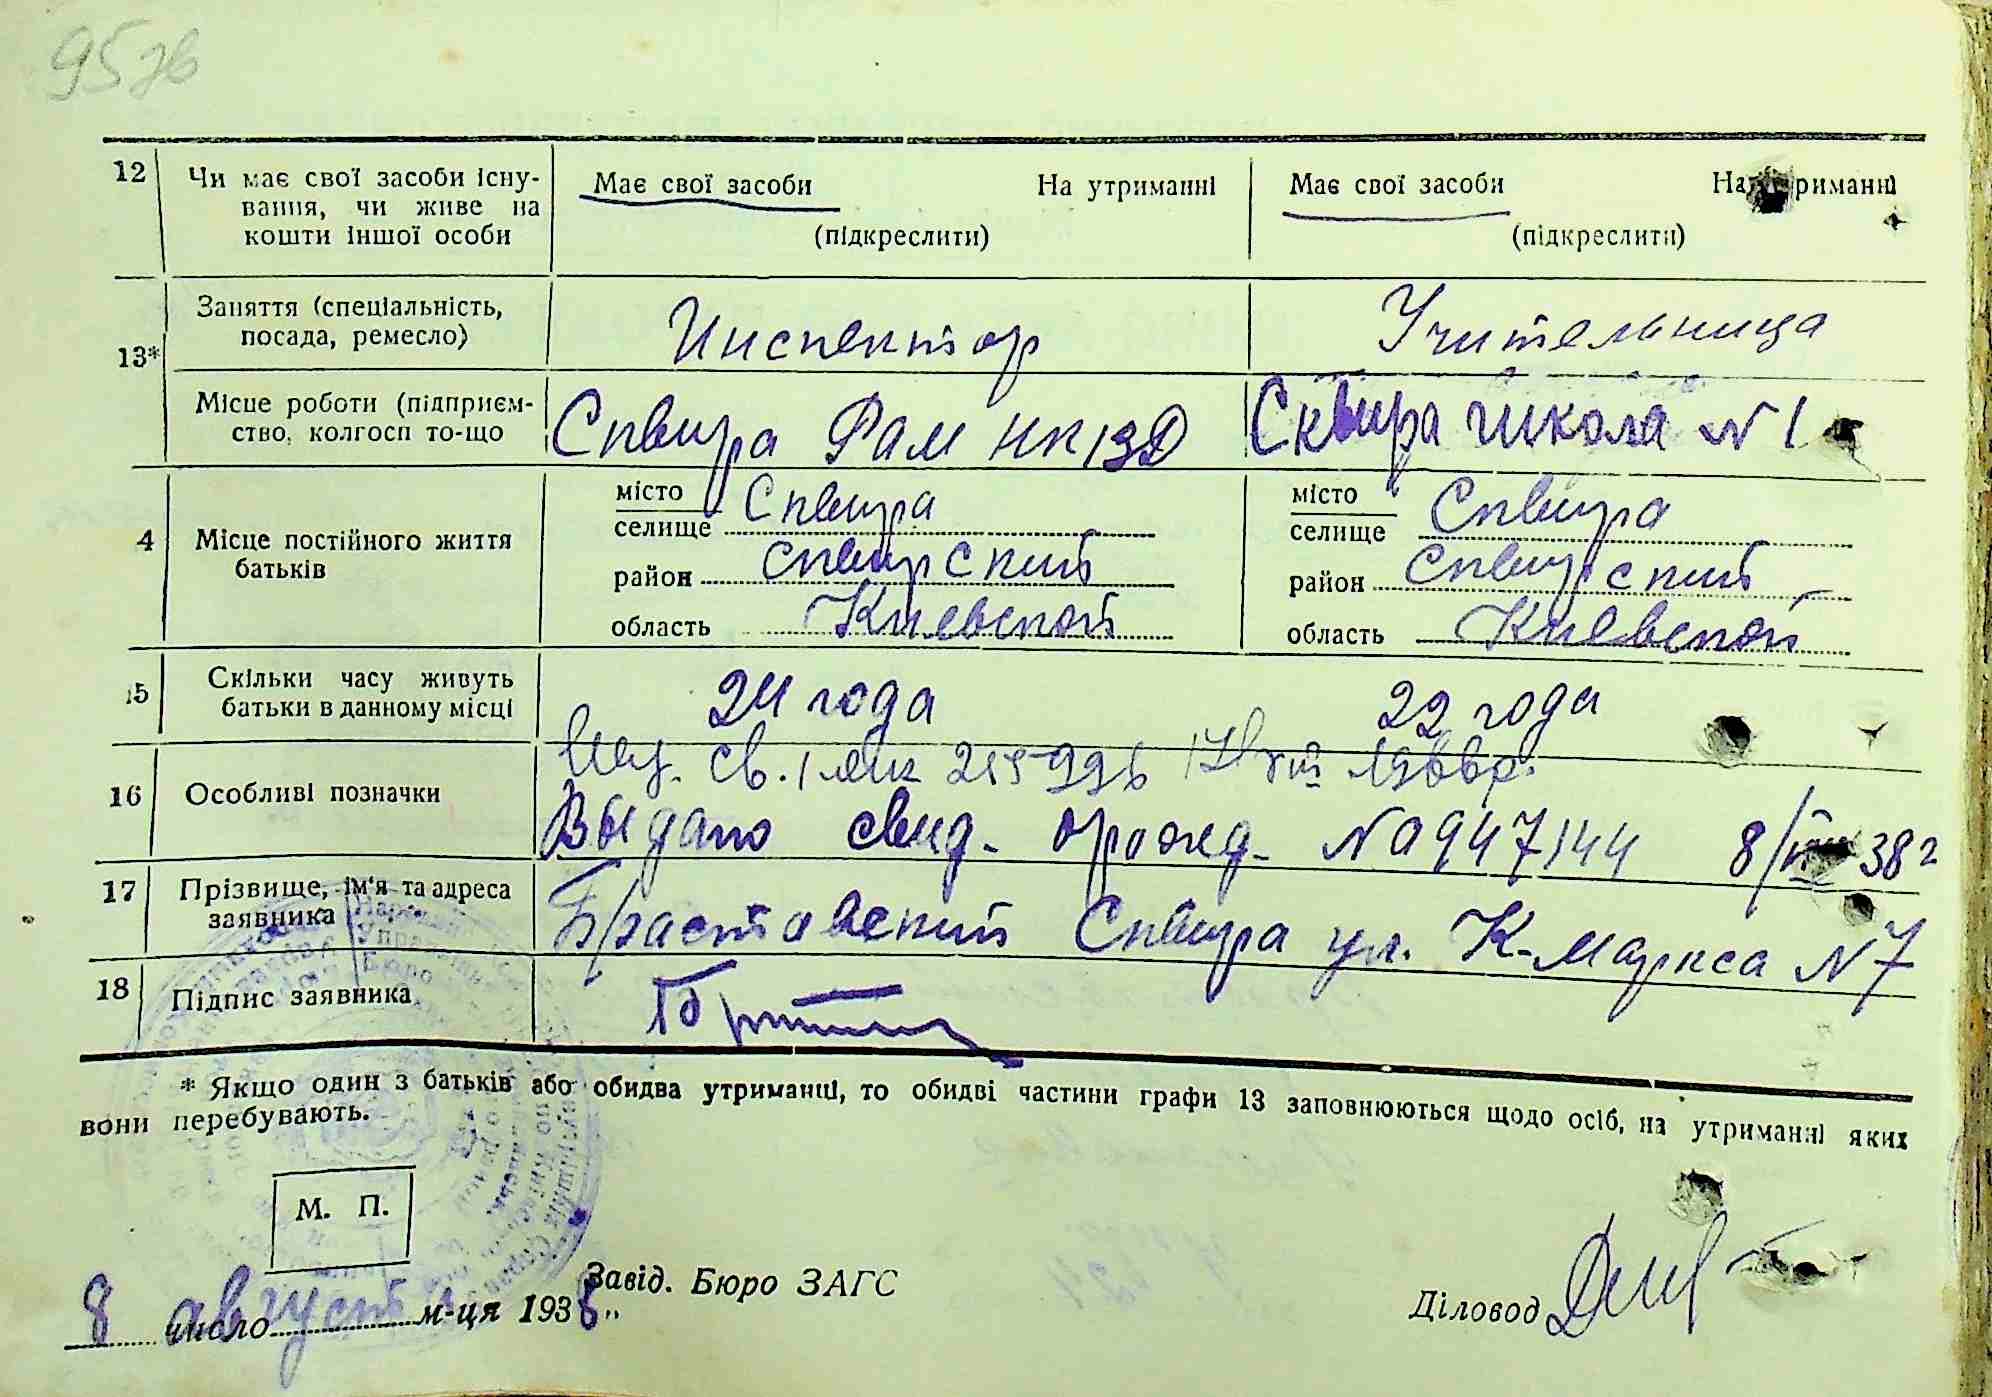 95 зв
12 Чи має свої засоби існу- Має свої засоби На утриманні Має свої засоби На утриманні
вання, чи живе на
кошти іншої особи (підкреслити) (підкреслити)
Заняття (спеціальність, Инспектор Учительница
посада, ремесло)
13*
Місце роботи (підприєм- Сквира Рай НКВД Сквира школа №1
ство, колгосп то-що
місто Сквира місто Сквира
селище селище
4 Місце постійного життя
батьків
район Сквирский район Сквирский
область Киевской область Киевской
15 Скільки часу живуть 24 года 22 года
батьки в данному місці
св.
16 Особливі позначки
Выдано свид. о рожд. № 0947144 8/VIII 38 г
17 Прізвище, ім'я та адреса
заявника Сквира ул. К-Маркса №7
18 Підпис заявника
* Якщо один з батьків або обидва утриманці, то обидві частини графи 13 заповнюються щодо осіб, на утриманні яких
вони перебувають.
М. П.
Завід. Бюро ЗАГС
8 число август м-ця 1938 „
Діловод